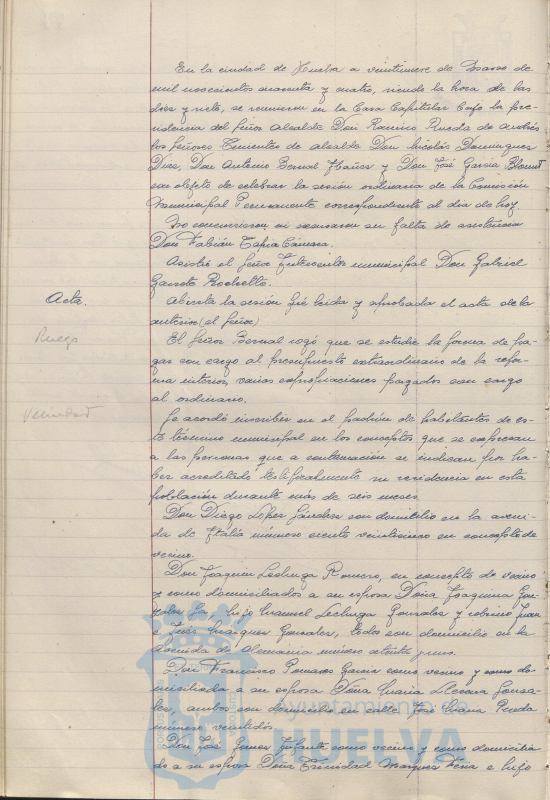 En la ciudad de Huelva a veintinueve de Marzo de
mil novecientos cuarenta y cuatro, siendo la hora de las
diez y siete, se reunieron en la Casa Capitular bajo la pre-
sidencia del Señor Alcalde Don Ramiro Rueda de Andrés
los Señores Tenientes de alcalde Don Nicolás Dominguez
Diaz, Don Antonio Bernal Ibañez y Don José Garcia
con objeto de celebrar la sesión ordinaria de la Comisión
Municipal Permanente correspondiente al dia de hoy.
No concurrieron ni excusaron su falta de asistencia
Don Fabián Tapia Cánovas.
Asistió el Señor Interventor municipal Don Gabriel
Garrote Rochette.
Acta.
Abierta la sesión fué leida y aprobada el acta de la
anterior (el Señor)
Ruego
El Señor Bernal rogó que se estudie la forma de pa-
gar con cargo al presupuesto extraordinario de la refor-
ma interior, varias expropiaciones pagadas con cargo
al ordinario.
Vecindad
Se acordó inscribir en el padrón de habitantes de es-
te término municipal en los conceptos que se expresan
a las personas que a continuación se indican por ha-
ber acreditado testificalmente su residencia en esta
población durante más de seis meses
Don Diego López Sánchez con domicilio en la aveni-
da de Italia número ciento veinticinco en concepto de
vecino.
Don Joaquin Lechuga Romero, en concepto de vecino
y como domiciliados a su esposa Doña Joaquina Gon-
zalez su hijo Manuel Lechuga Gonzalez y sobrino Juan
e Inés Gonzalez, todos con domicilio en la
Avenida de Alemania número
Don Francisco Garcia como vecino y como do-
miciliada a su esposa Doña Maria Gonza-
lez, ambos con domicilio en calle José Maria
número veintidós
Don José Gomez Infante como vecino y como domicilia-
do a su esposa Doña Trinidad Marquez e hijo
Ayuntamiento de
HUELVA